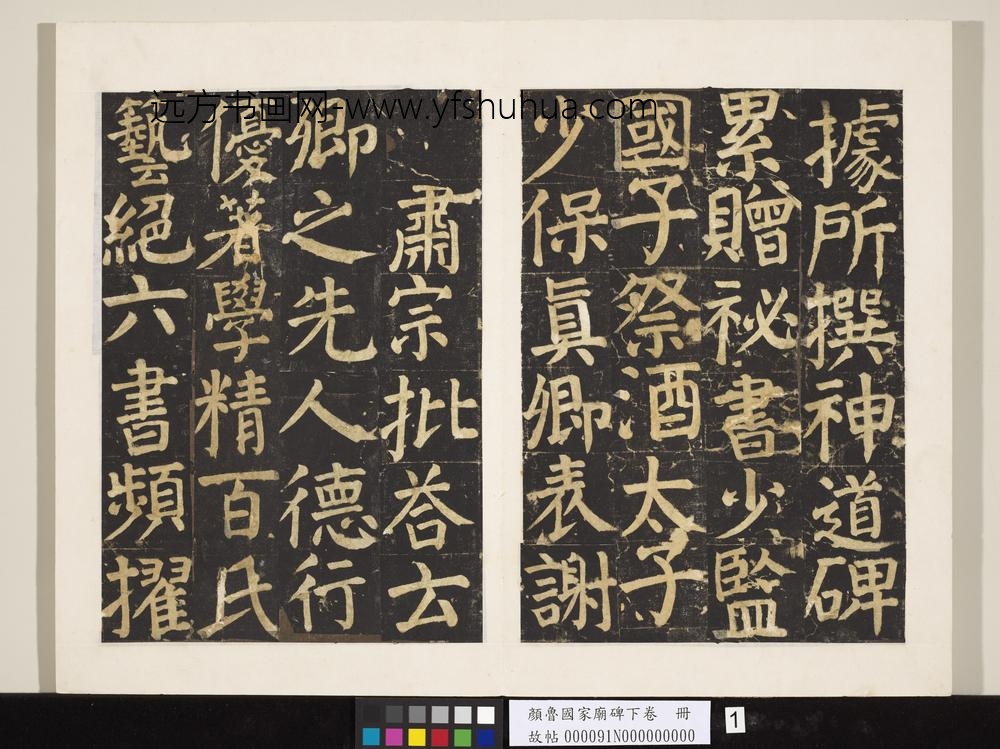 远方书画网-www.yfshuhua.com
據所撰神道碑
累贈祕書少監
國子祭酒太子
少保真卿表謝
肅宗批荅云
卿之先人德行
優著學精百氏
藝絕六書頻擢
顏魯國家廟碑下卷 冊
故帖 000091N000000000
1